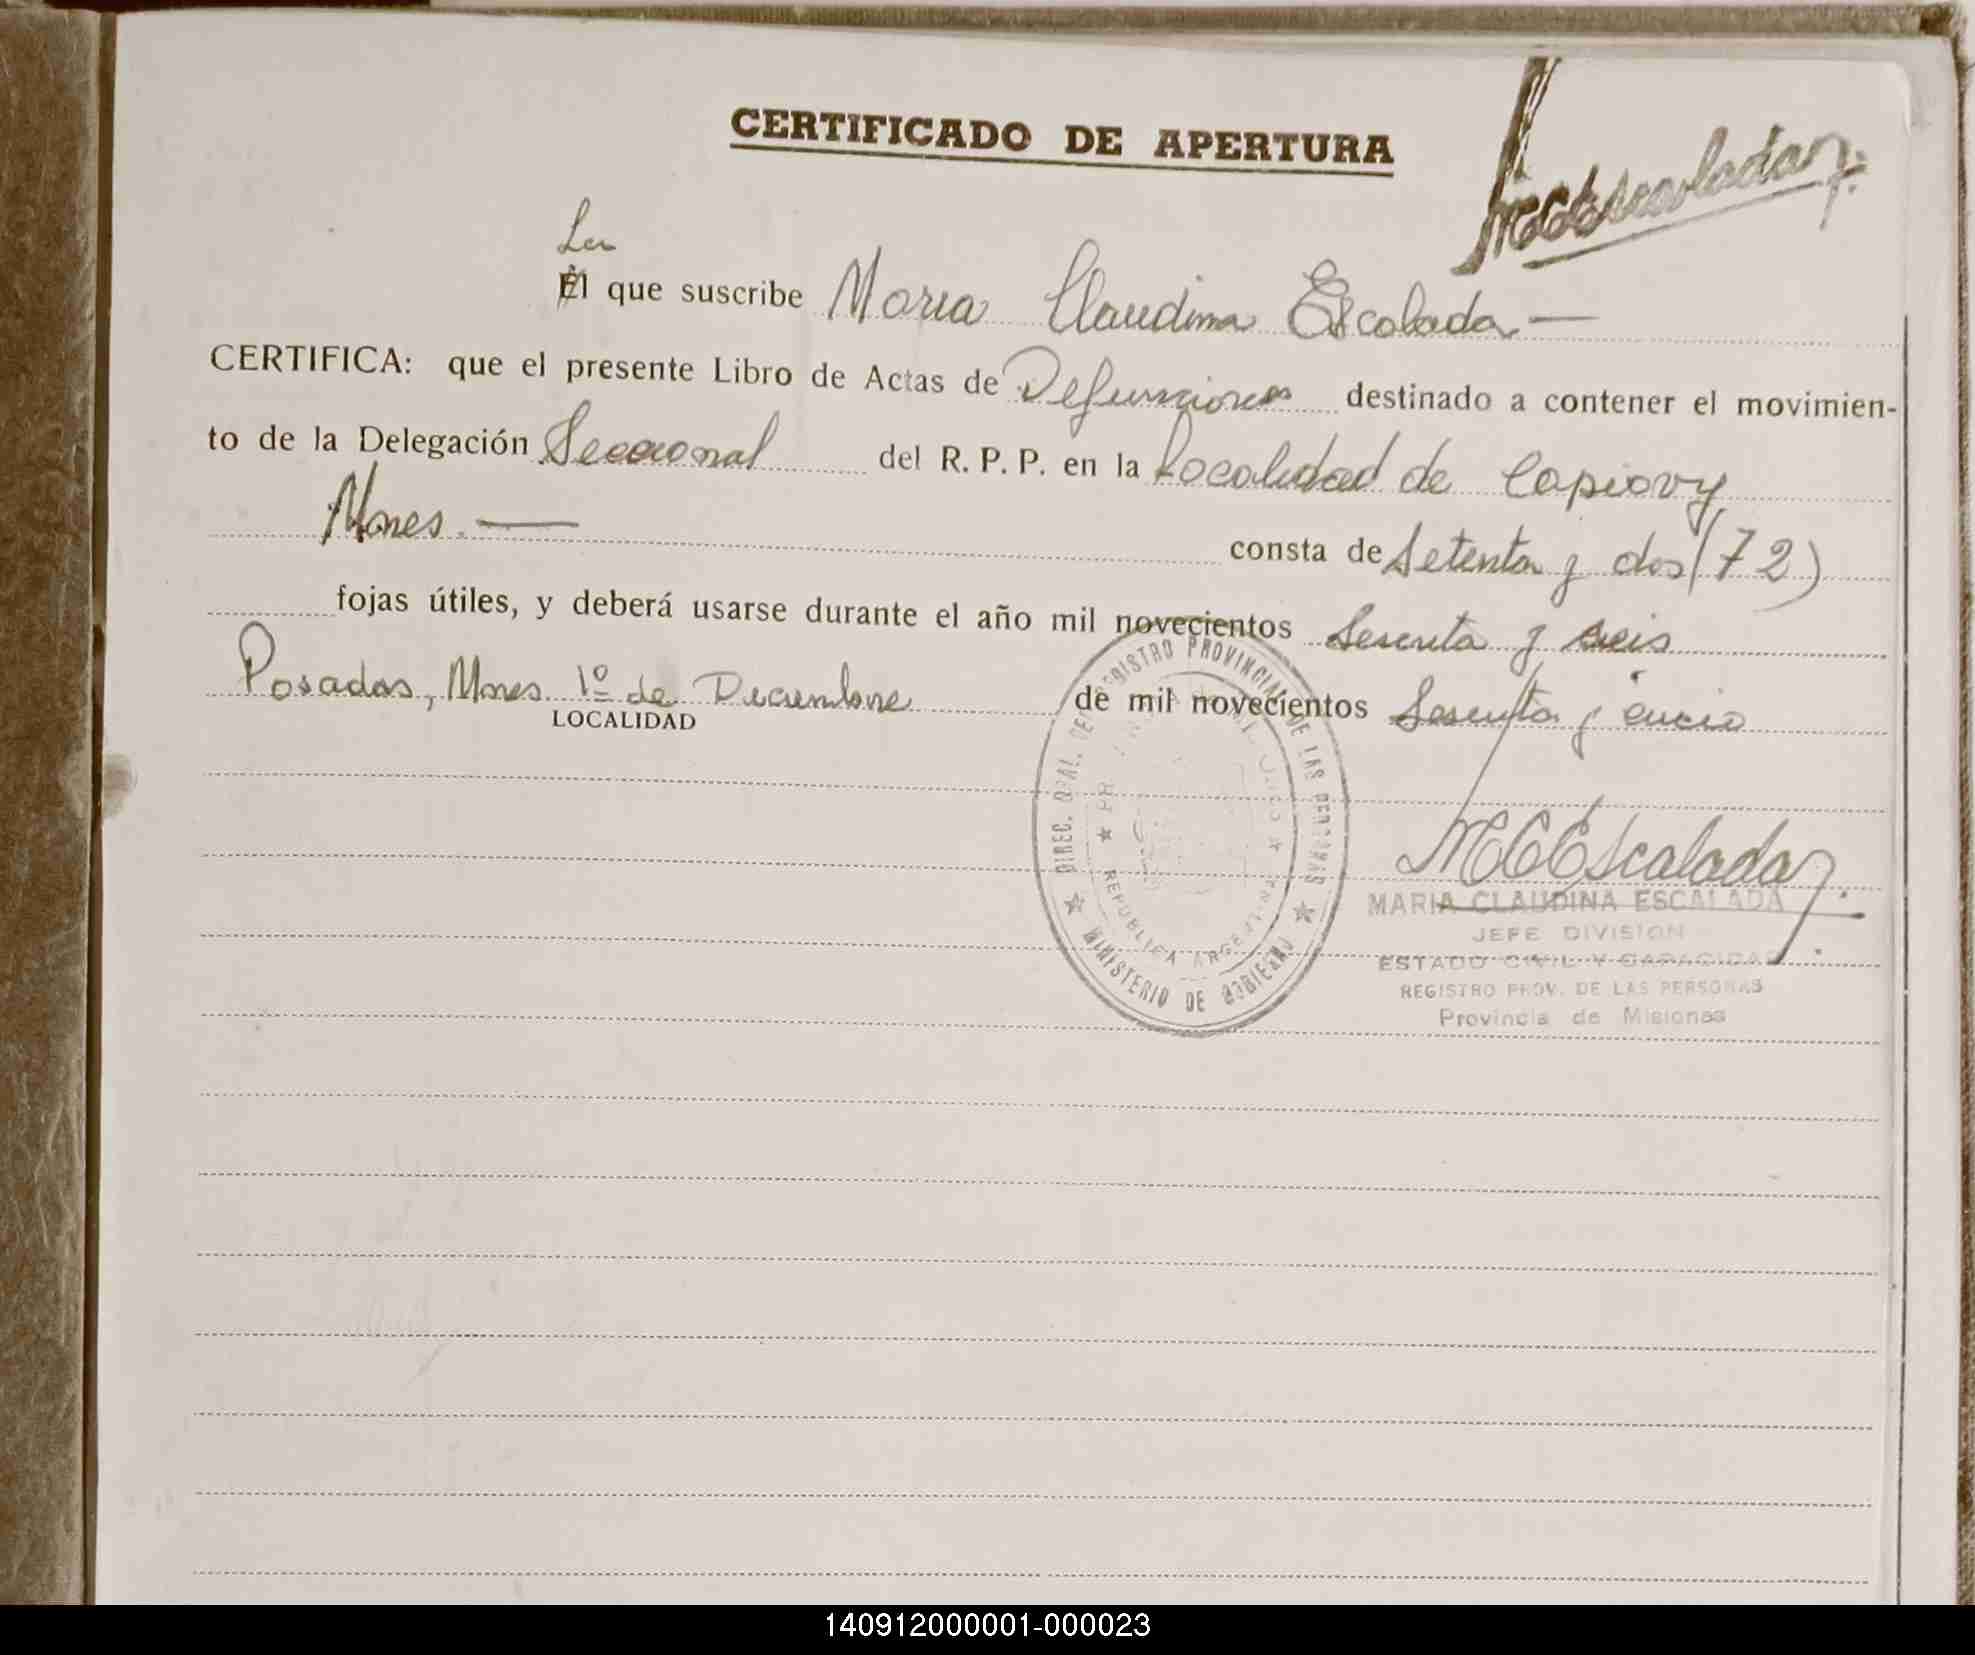 CERTIFICADO DE APERTURA
MCEscalada
La
El que suscribe Maria Claudina Escalada —
CERTIFICA: que el presente Libro de Actas de Defunciones destinado a contener el movimien-
to de la Delegación Seccional del R. P. P. en la Localidad de Capiovy
Mnes. — consta de Setenta y dos (72)
fojas útiles, y deberá usarse durante el año mil novecientos Sesenta y seis
Posadas, Mnes. 1º de Diciembre de mil novecientos Sesenta y cinco
LOCALIDAD
DIREC. GRAL. DEL REGISTRO PROVINCIAL DE LAS PERSONAS
★ MINISTERIO DE GOBIERNO ★
★ REPUBLICA ARGENTINA ★
MCEscalada
MARIA CLAUDINA ESCALADA
JEFE DIVISION
ESTADO CIVIL Y CAPACIDAD
REGISTRO PROV. DE LAS PERSONAS
Provincia de Misiones
140912000001-000023